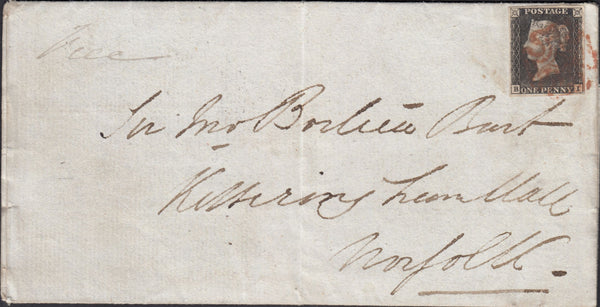 POSTAGE
ONE PENNY
Sir Jno Boileau Bart
Ketteringham Hall
Norfolk.